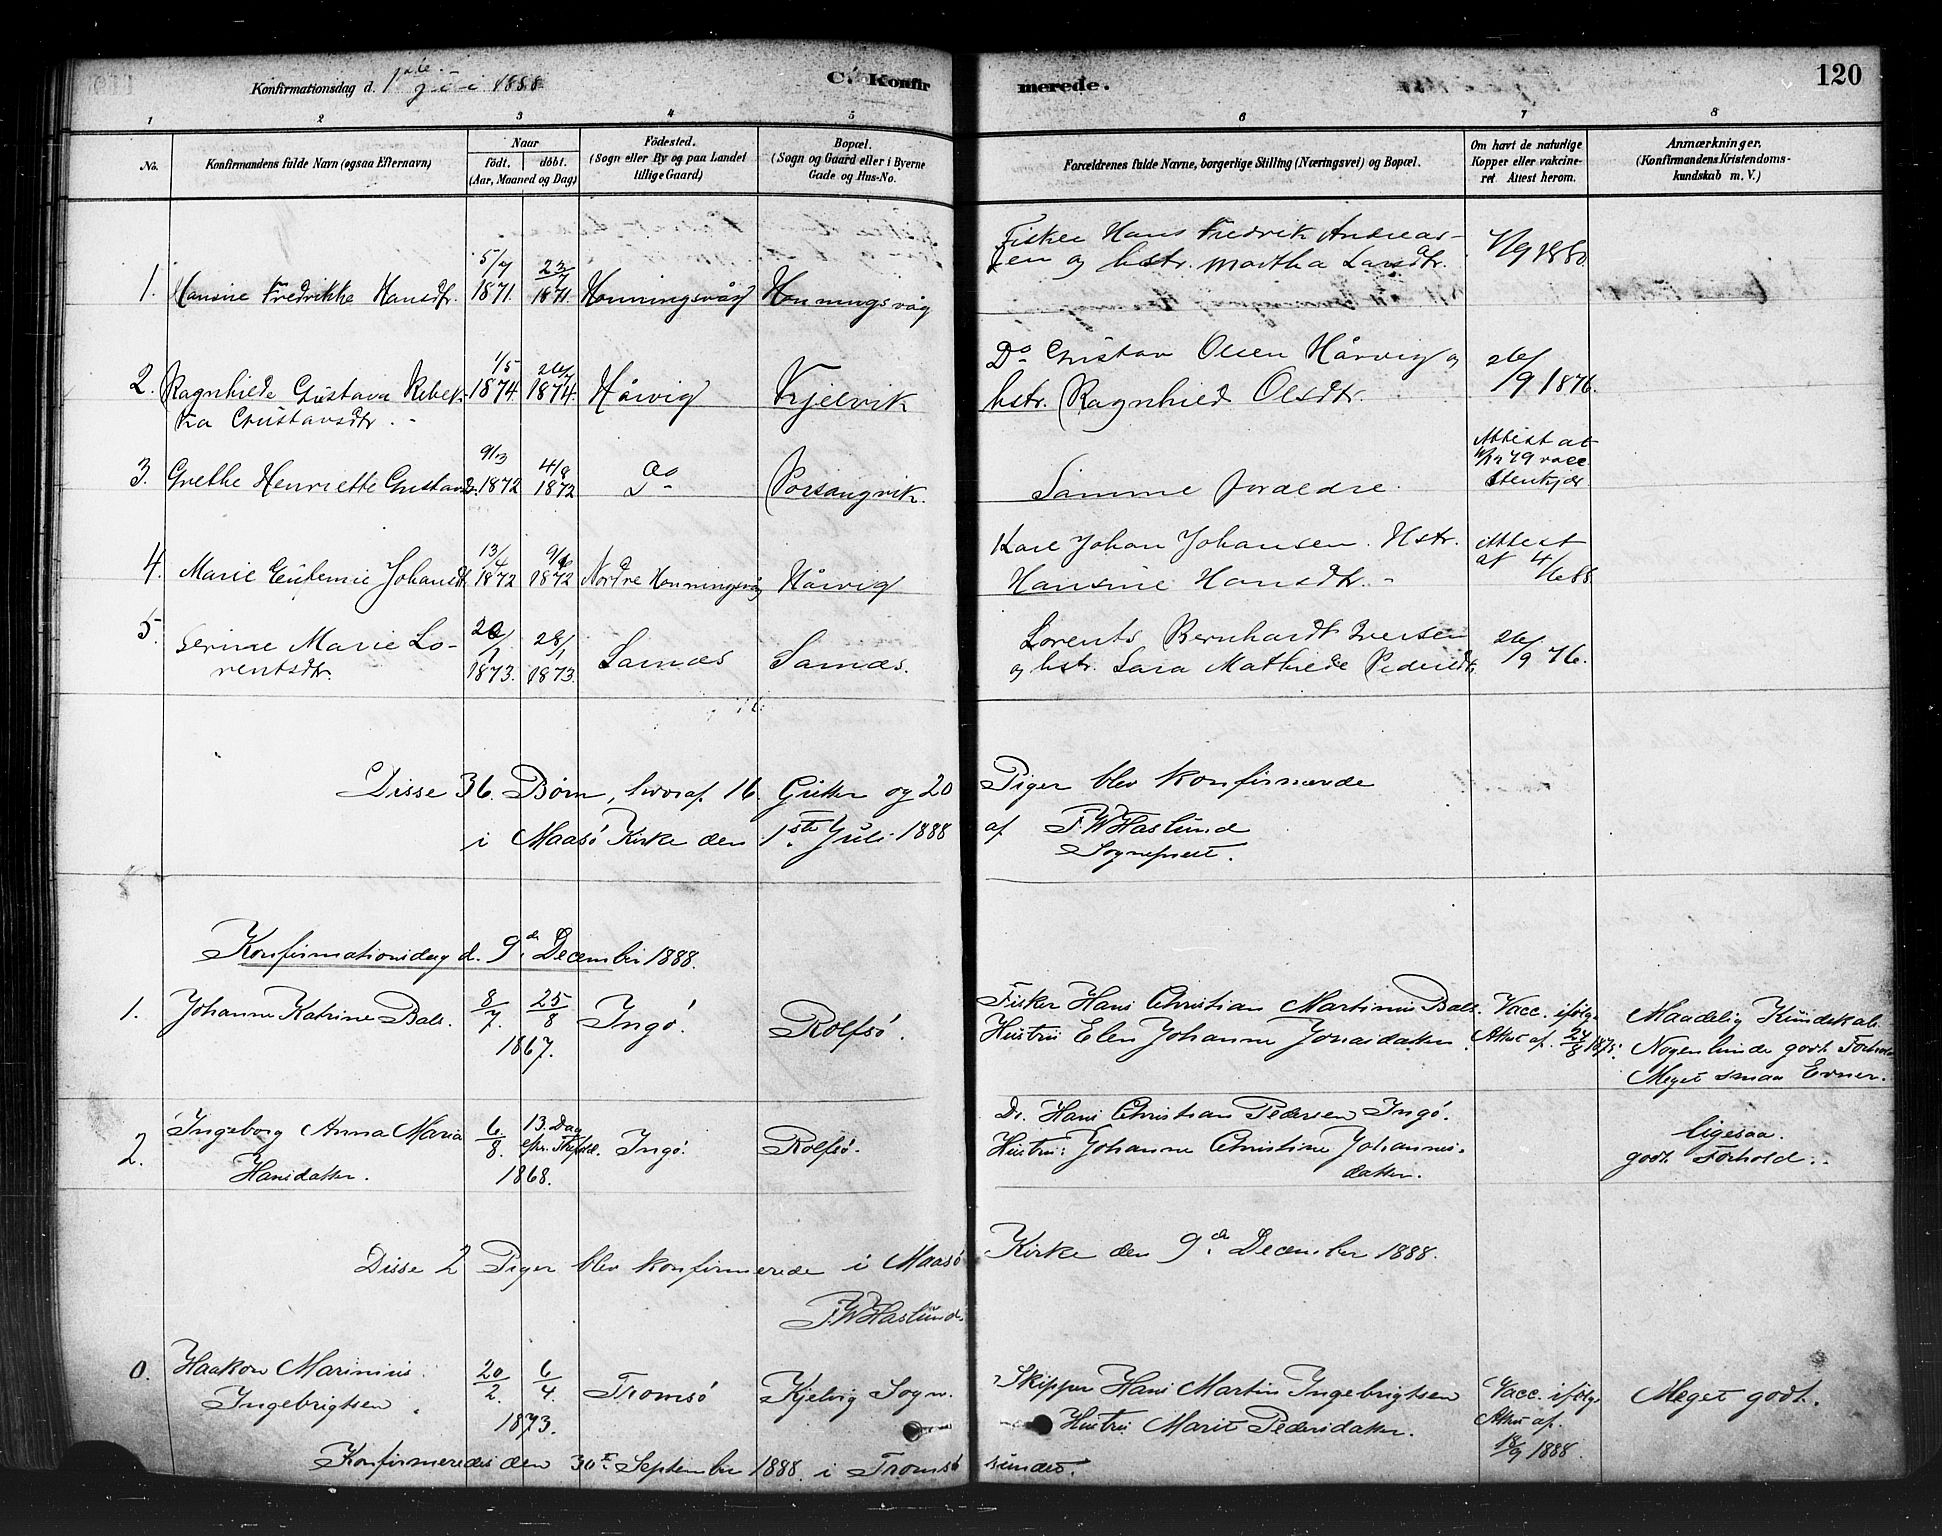 Konfirmationsdag d. 1ste Juli 1888
C. Konfirmerede.
120
1 2 3 4 5 6 7 8
No.
Konfirmandens fulde Navn (ogsaa Efternavn)
Naar
födt. döbt.
(Aar, Maaned og Dag)
Födested.
(Sogn eller By og paa Landet
tillige Gaard)
Bopæl.
(Sogn og Gaard eller i Byerne
Gade og Hus-No.
Forældrenes fulde Navne, borgerlige Stilling (Næringsvei) og Bopæl.
Om havt de naturlige
Kopper eller vakcine-
ret. Attest herom.
Anmærkninger.
(Konfirmandens Kristendoms-
kundskab m. V.)
1. Hansine Fredrikke Hansdtr. 5/7 1871. 23/7 1871. Honningsvåg Honningsvåg
Fisker Hans Fredrik Andreas-
sen og hstr. Martha Larsdtr.
1880
2. Ragnhilde Gustava Rebek-
ka Gustavsdtr.
1/5 1874 26/7 1874. Hårvig Kjelvik
Do Gustav Olsen Hårvig og
hstr. Ragnhild Olsdtr.
26/9 1876.
3. Grethe Henriette Gustavsd. 1872 4/8 1872 Do Porsangvik.
Samme foraeldre.
Attest at
79 vacc.
Stenkjær
4. Marie Eufemie Johansdt. 13/4 1872 1872 Nordre Honningsvåg Hårvig
Karl Johan Johansen. Hstr.
Hansine Hansdtr.
Attest
af 4/6 88
5. Serine Marie Lo-
rentsdtr.
1873. 28/1 1873. Sarnæs Sarnæs.
Lorents Bernhardt Iversen
og hstr. Sara Mathilde Pedersdt.
26/9 76.
Disse 36. Børn, hvoraf 16. Gutter og 20 Piger blev konfirmerede
i Maasö Kirke den 1ste Juli 1888 af F. W. Haslund
Sognepræst.
Konfirmationsdag d. 9de December 1888.
1. Johanne Katrine Bals. 8/7. 25/8 1867. Ingö. Rolfsö.
Fisker Hans Christian Martinus Bals.
Hustru Elen Johanne Jonasdatter.
Vacc. ifölge
Attest af. 24/8 1875.
Maadelig Kundskab.
Nogenlunde godt Forhold
Meget smaa Evner.
2. Ingeborg Anna Maria
Hansdatter.
6/8. 13. Dag
1868. Ingö. Rolfsö.
Do. Hans Christian Pedersen Ingö.
Hustru: Johanne Christine Johannes-
datter.
ligesaa.
godt Forhold.
Disse 2 Piger blev konfirmerede i Maasö Kirke den 9de December 1888.
F. W. Haslund.
0. Haakon Marinius
Ingebrigtsen
20/2 6/4 1873. Tromsö Kjelvig Sogn.
Skipper Hans Martin Ingebrigtsen
Hustru Marit Pedersdatter.
Vacc. ifölge
Attest af.
18/9 1888.
Meget godt.
Konfirmeredes den 30te September 1888 i Tromsösundet.